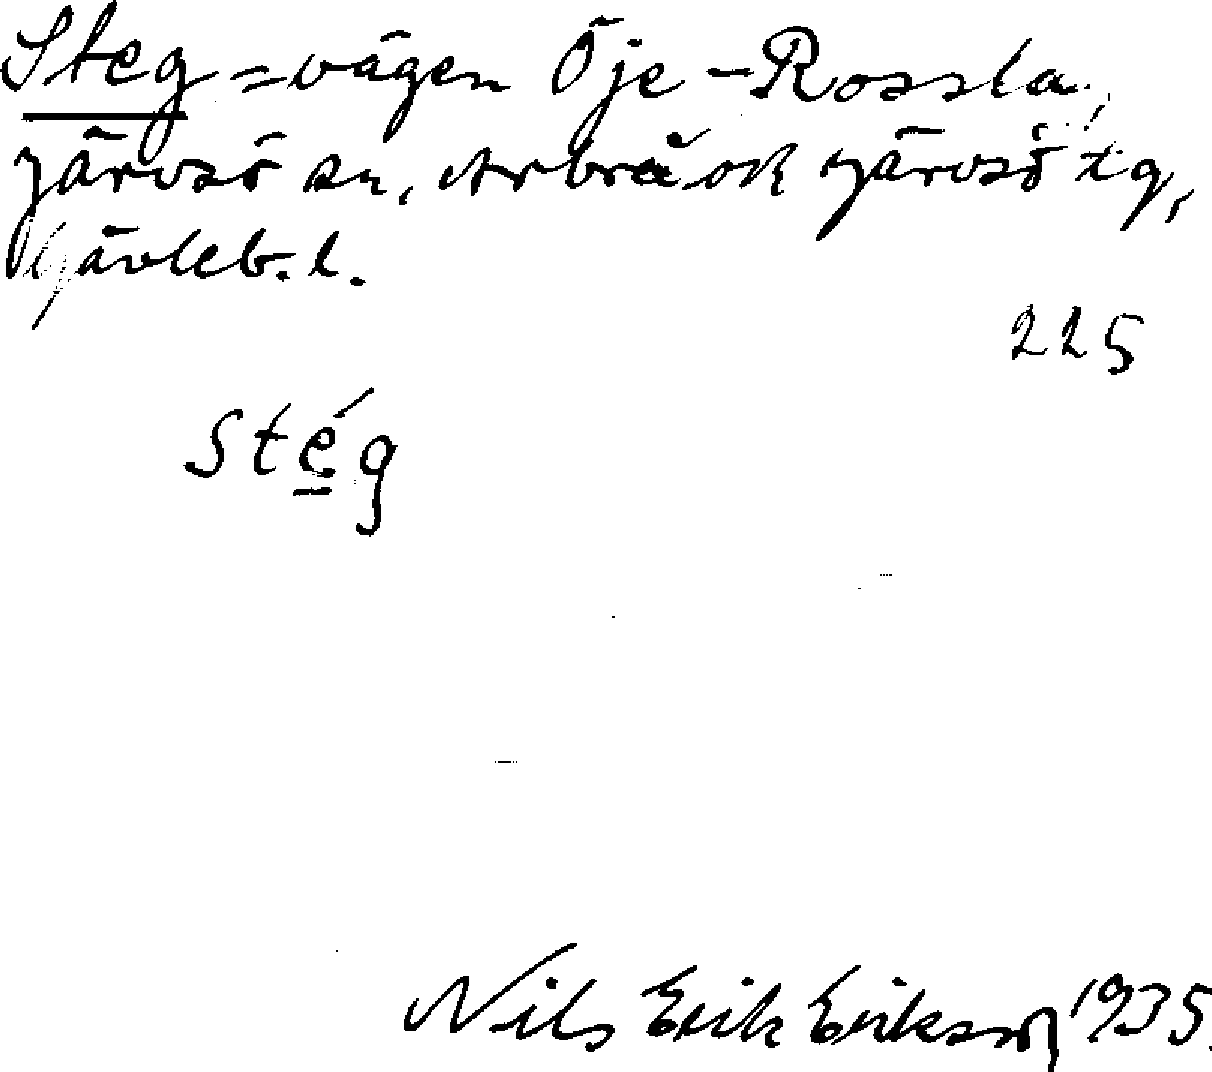 Steg = vägen Öje - Rossla,
Järvsö sn, Arbrå ok Järvsö tg,
Gävleb. l.
225
Stég
Nils Erik Erikson 1935.